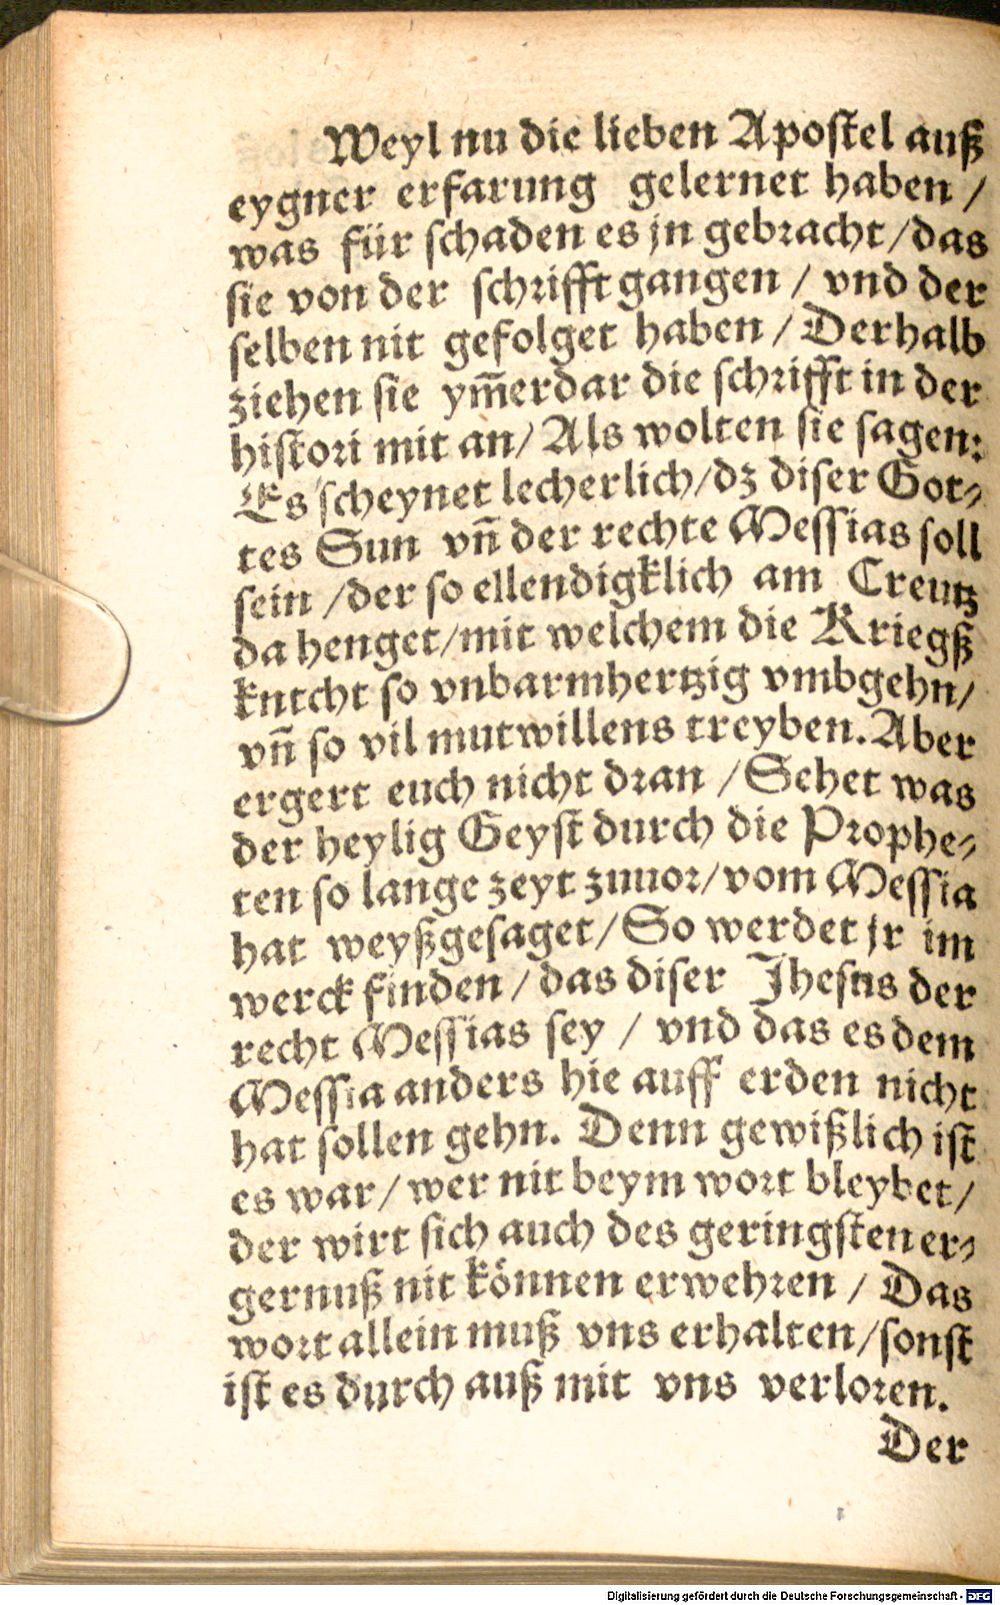 Weyl nu die lieben Apostel auß
eygner erfarung gelernet haben /
was für schaden es jn gebracht / das
sie von der schrifft gangen / vnd der
selben nit gefolget haben / Derhalb
ziehen sie ym̃erdar die schrifft in der
histori mit an / Als wolten sie sagen:
Es scheynet lecherlich / dz diser Got⸗
tes Sun vñ der rechte Messias soll
sein / der so ellendigklich am Creutz
da henget / mit welchem die Kriegß
kntcht so vnbarmhertzig vmbgehn /
vñ so vil mutwillens treyben. Aber
ergert euch nicht dran / Sehet was
der heylig Geyst durch die Prophe⸗
ten so lange zeyt zuuor / vom Messia
hat weyßgesaget / So werdet jr im
werck finden / das diser Jhesus der
recht Messias sey / vnd das es dem
Messia anders hie auff erden nicht
hat sollen gehn. Denn gewißlich ist
es war / wer nit beym wort bleybet /
der wirt sich auch des geringsten er⸗
gernuß nit können erwehren / Das
wort allein muß vns erhalten / sonst
ist es durch auß mit vns verloren.
Der
Digitalisierung gefördert durch die Deutsche Forschungsgemeinschaft - DFG